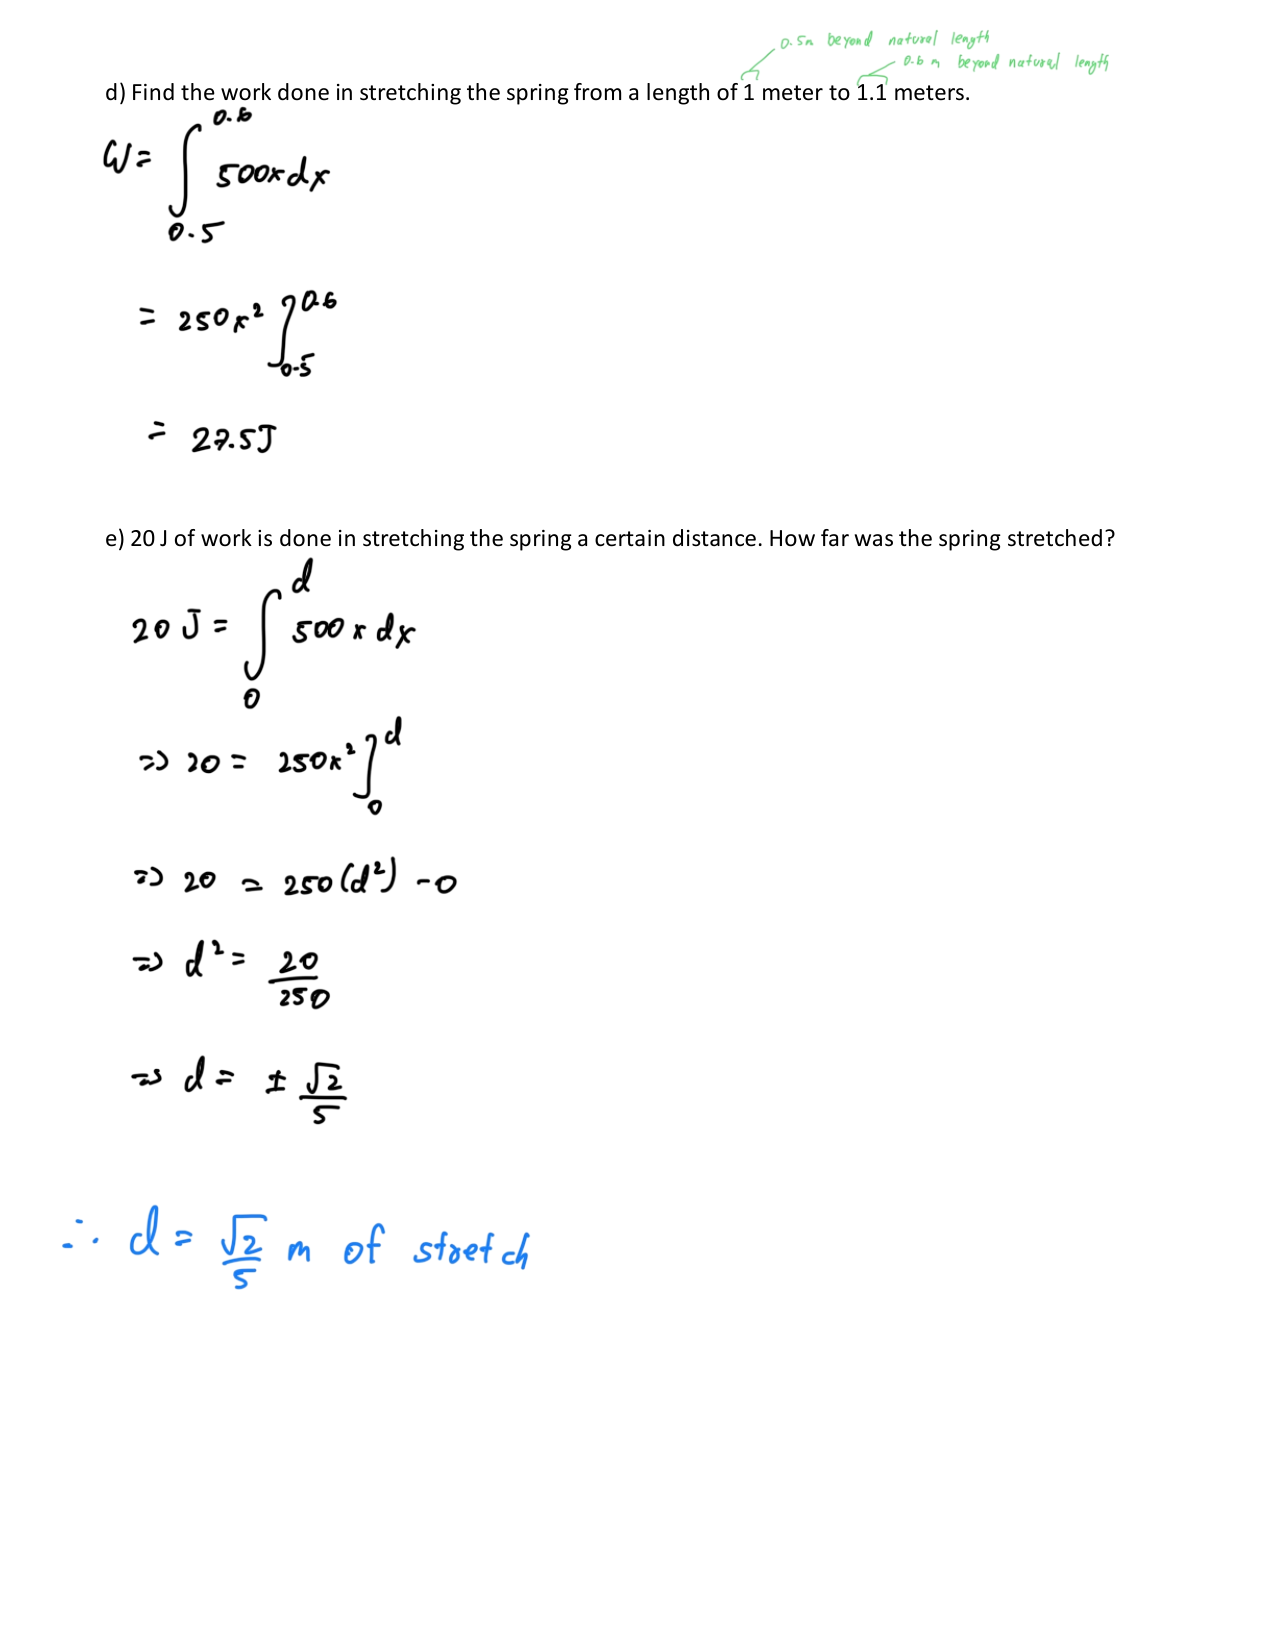 0.5m beyond natural length
0.6 m beyond natural length
d) Find the work done in stretching the spring from a length of 1 meter to 1.1 meters.
W = ∫_{0.5}^{0.6} 500x dx
= 250x² ]_{0.5}^{0.6}
= 27.5J
e) 20 J of work is done in stretching the spring a certain distance. How far was the spring stretched?
20 J = ∫_{0}^{d} 500 x dx
⇒ 20 = 250x² ]_{0}^{d}
⇒ 20 = 250(d²) - 0
⇒ d² = 20/250
⇒ d = ± √2/5
∴ d = √2/5 m of stretch